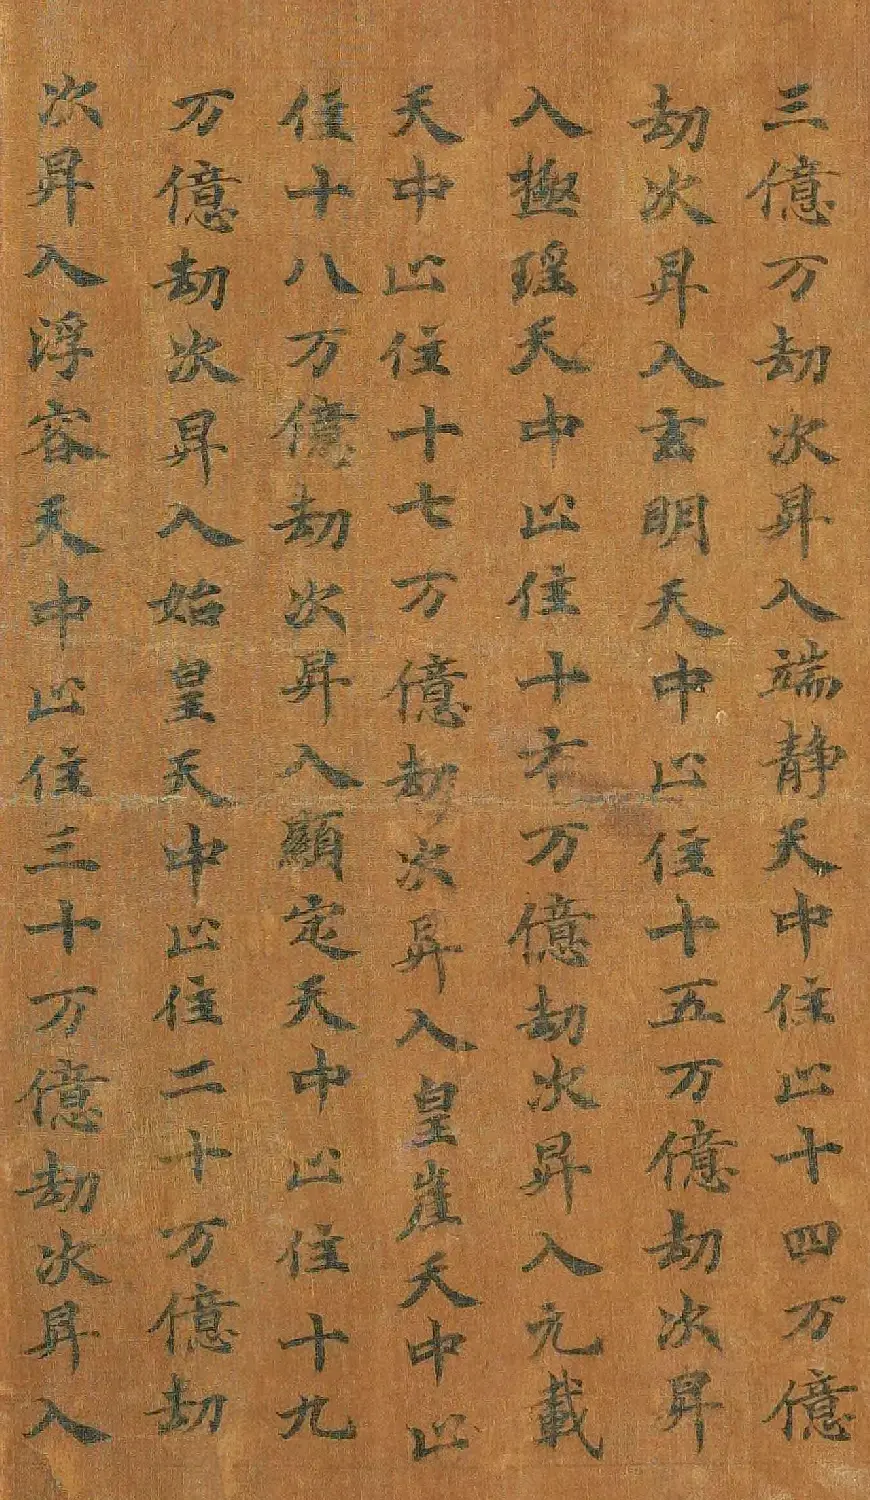 三億万劫次昇入端静天中住止十四万億
劫次昇入玄明天中止住十五万億劫次昇
入極瑶天中止住十六万億劫次昇入元載
天中止住十七万億劫次昇入皇崖天中止
住十八万億劫次昇入顯定天中止住十九
万億劫次昇入始皇天中止住二十万億劫
次昇入浮容天中止住三十万億劫次昇入